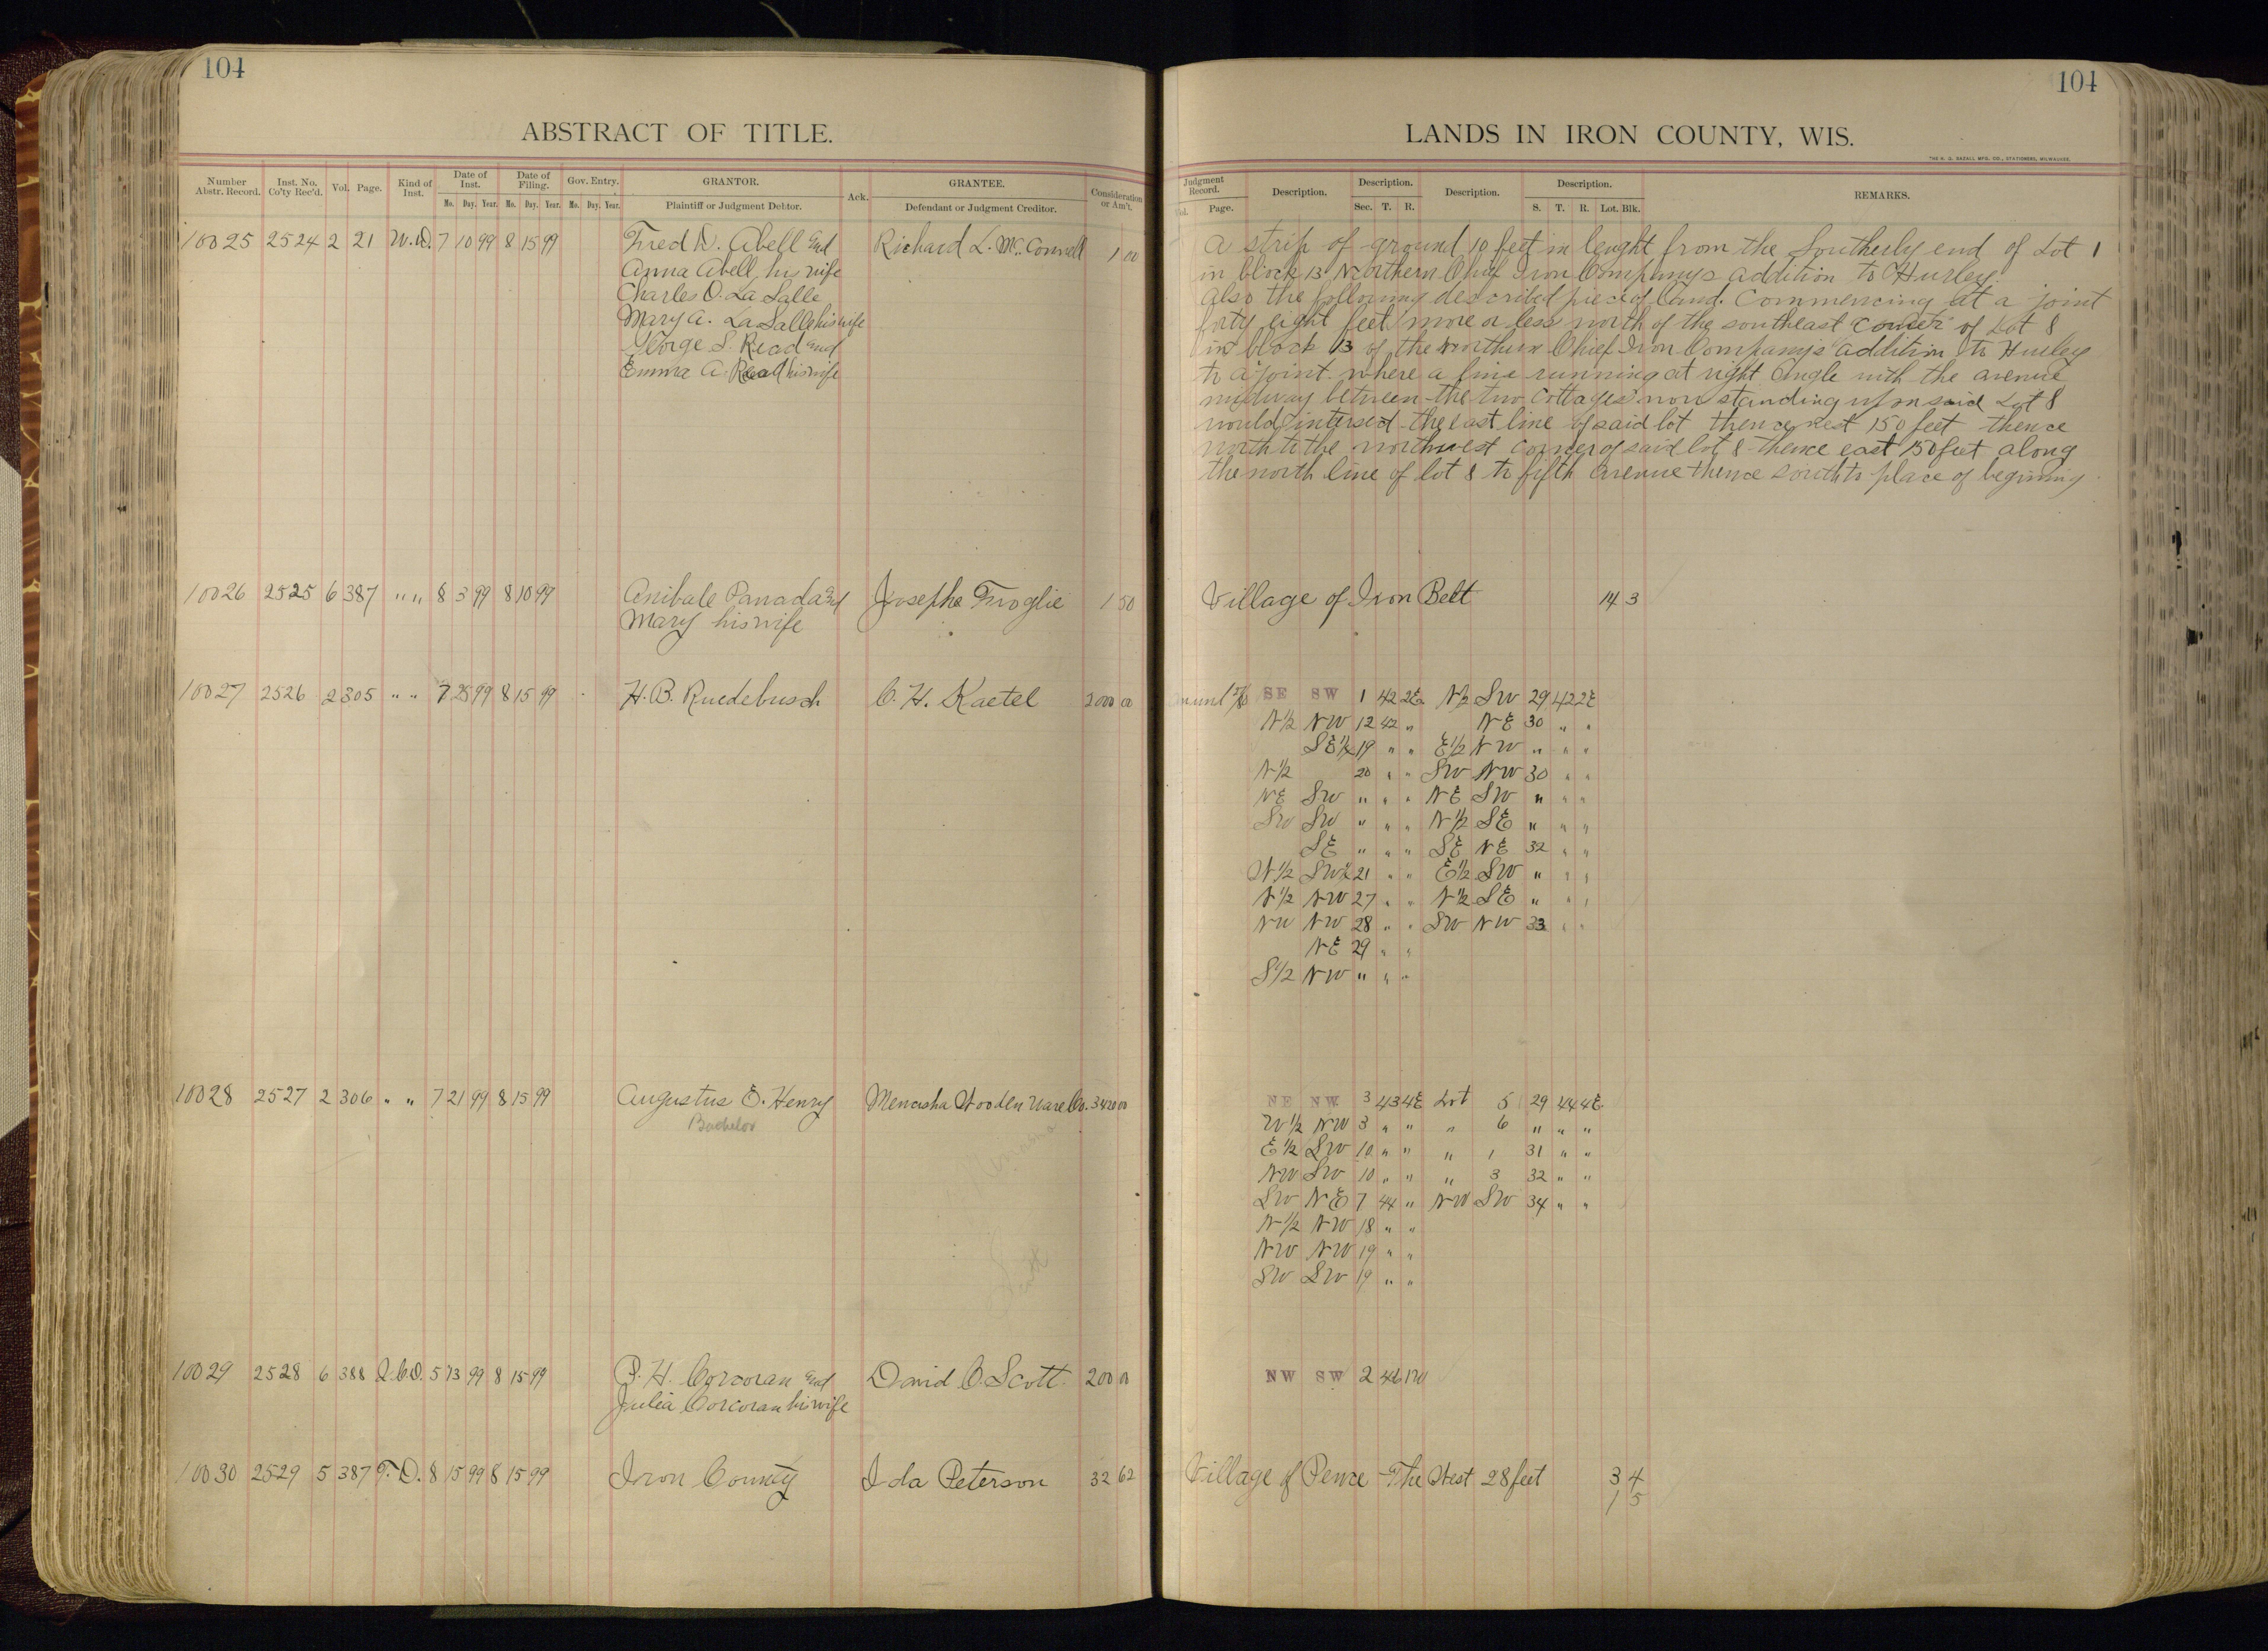 104
ABSTRACT OF TITLE.
Number Abstr. Record. Inst. No. Co'ty Rec'd. Vol. Page. Kind of Inst. Date of Inst. Date of Filing. Gov. Entry. GRANTOR. Ack. GRANTEE. Consideration or Am't.
Mo. Day. Year. Mo. Day. Year. Mo. Day. Year. Plaintiff or Judgment Debtor. Defendant or Judgment Creditor.
10025 2524 2 21 W.D. 7 10 99 8 15 99 Fred D. Abell and Richard L. McConnell 1 00
Anna Abell, his wife
Charles O. La Salle
Mary A. La Salle his wife
George S. Read and
Emma A. Read his wife
10026 2525 6 387 " " 8 3 99 8 10 99 Anibale Panada and Josephe Troglie 1 50
Mary his wife
10027 2526 2 305 " " 7 25 99 8 15 99 H. B. Ruedebusch C. H. Kaetel 2000 00
10028 2527 2 306 " " 7 21 99 8 15 99 Augustus E. Henry Menasha Wooden Ware Co. 3420 00
Bachelor
10029 2528 6 388 Q.C.D. 5 13 99 8 15 99 P. H. Corcoran and David C. Scott 200 00
Julia Corcoran his wife
10030 2529 5 387 T.D. 8 15 99 8 15 99 Iron County Ida Peterson 32 62
104
LANDS IN IRON COUNTY, WIS.
Judgment Record. Description. Description. Description. Description. REMARKS.
Vol. Page. Sec. T. R. S. T. R. Lot. Blk.
A strip of ground 10 feet in lenght from the Southerly end of Lot 1
in block 13 Northern Chief Iron Companys addition to Hurley.
Also the following described piece of land. Commencing at a joint
forty eight feet more or less north of the southeast corner of Lot 8
in block 13 of the Northern Chief Iron Company's addition to Hurley
to a joint where a line running at right angle with the avenue
midway between the two cottages now standing upon said Lot 8
would intersect the east line of said lot thence west 150 feet thence
north to the northwest corner of said lot 8 thence east 150 feet along
the north line of lot 8 to fifth avenue thence south to place of beginning
Village of Iron Belt 14 3
SE SW 1 42 2E N½ SW 29 42 2E
N½ NW 12 42 " NE 30 " "
SE¼ 19 " " E½ NW " " "
N½ 20 " " SW NW 30 " "
NE SW " " " NE SW " " "
SW SW " " " N½ SE " " "
SE " " " SE NE 32 " "
W½ SW¼ 21 " " E½ SW " " "
N½ NW 27 " " N½ SE " " "
NW NW 28 " " SW NW 33 " "
NE 29 " "
S½ NW " " "
NE NW 3 43 4E Lot 5 29 44 4E
W½ NW 3 " " " 6 " " "
E½ SW 10 " " " 1 31 " "
NW SW 10 " " " 3 32 " "
SW NE 7 44 " NW SW 34 " "
N½ NW 18 " "
NW NW 19 " "
SW SW 19 " "
NW SW 2 46 1W
Village of Pence The West 28 feet 3 4
1 5